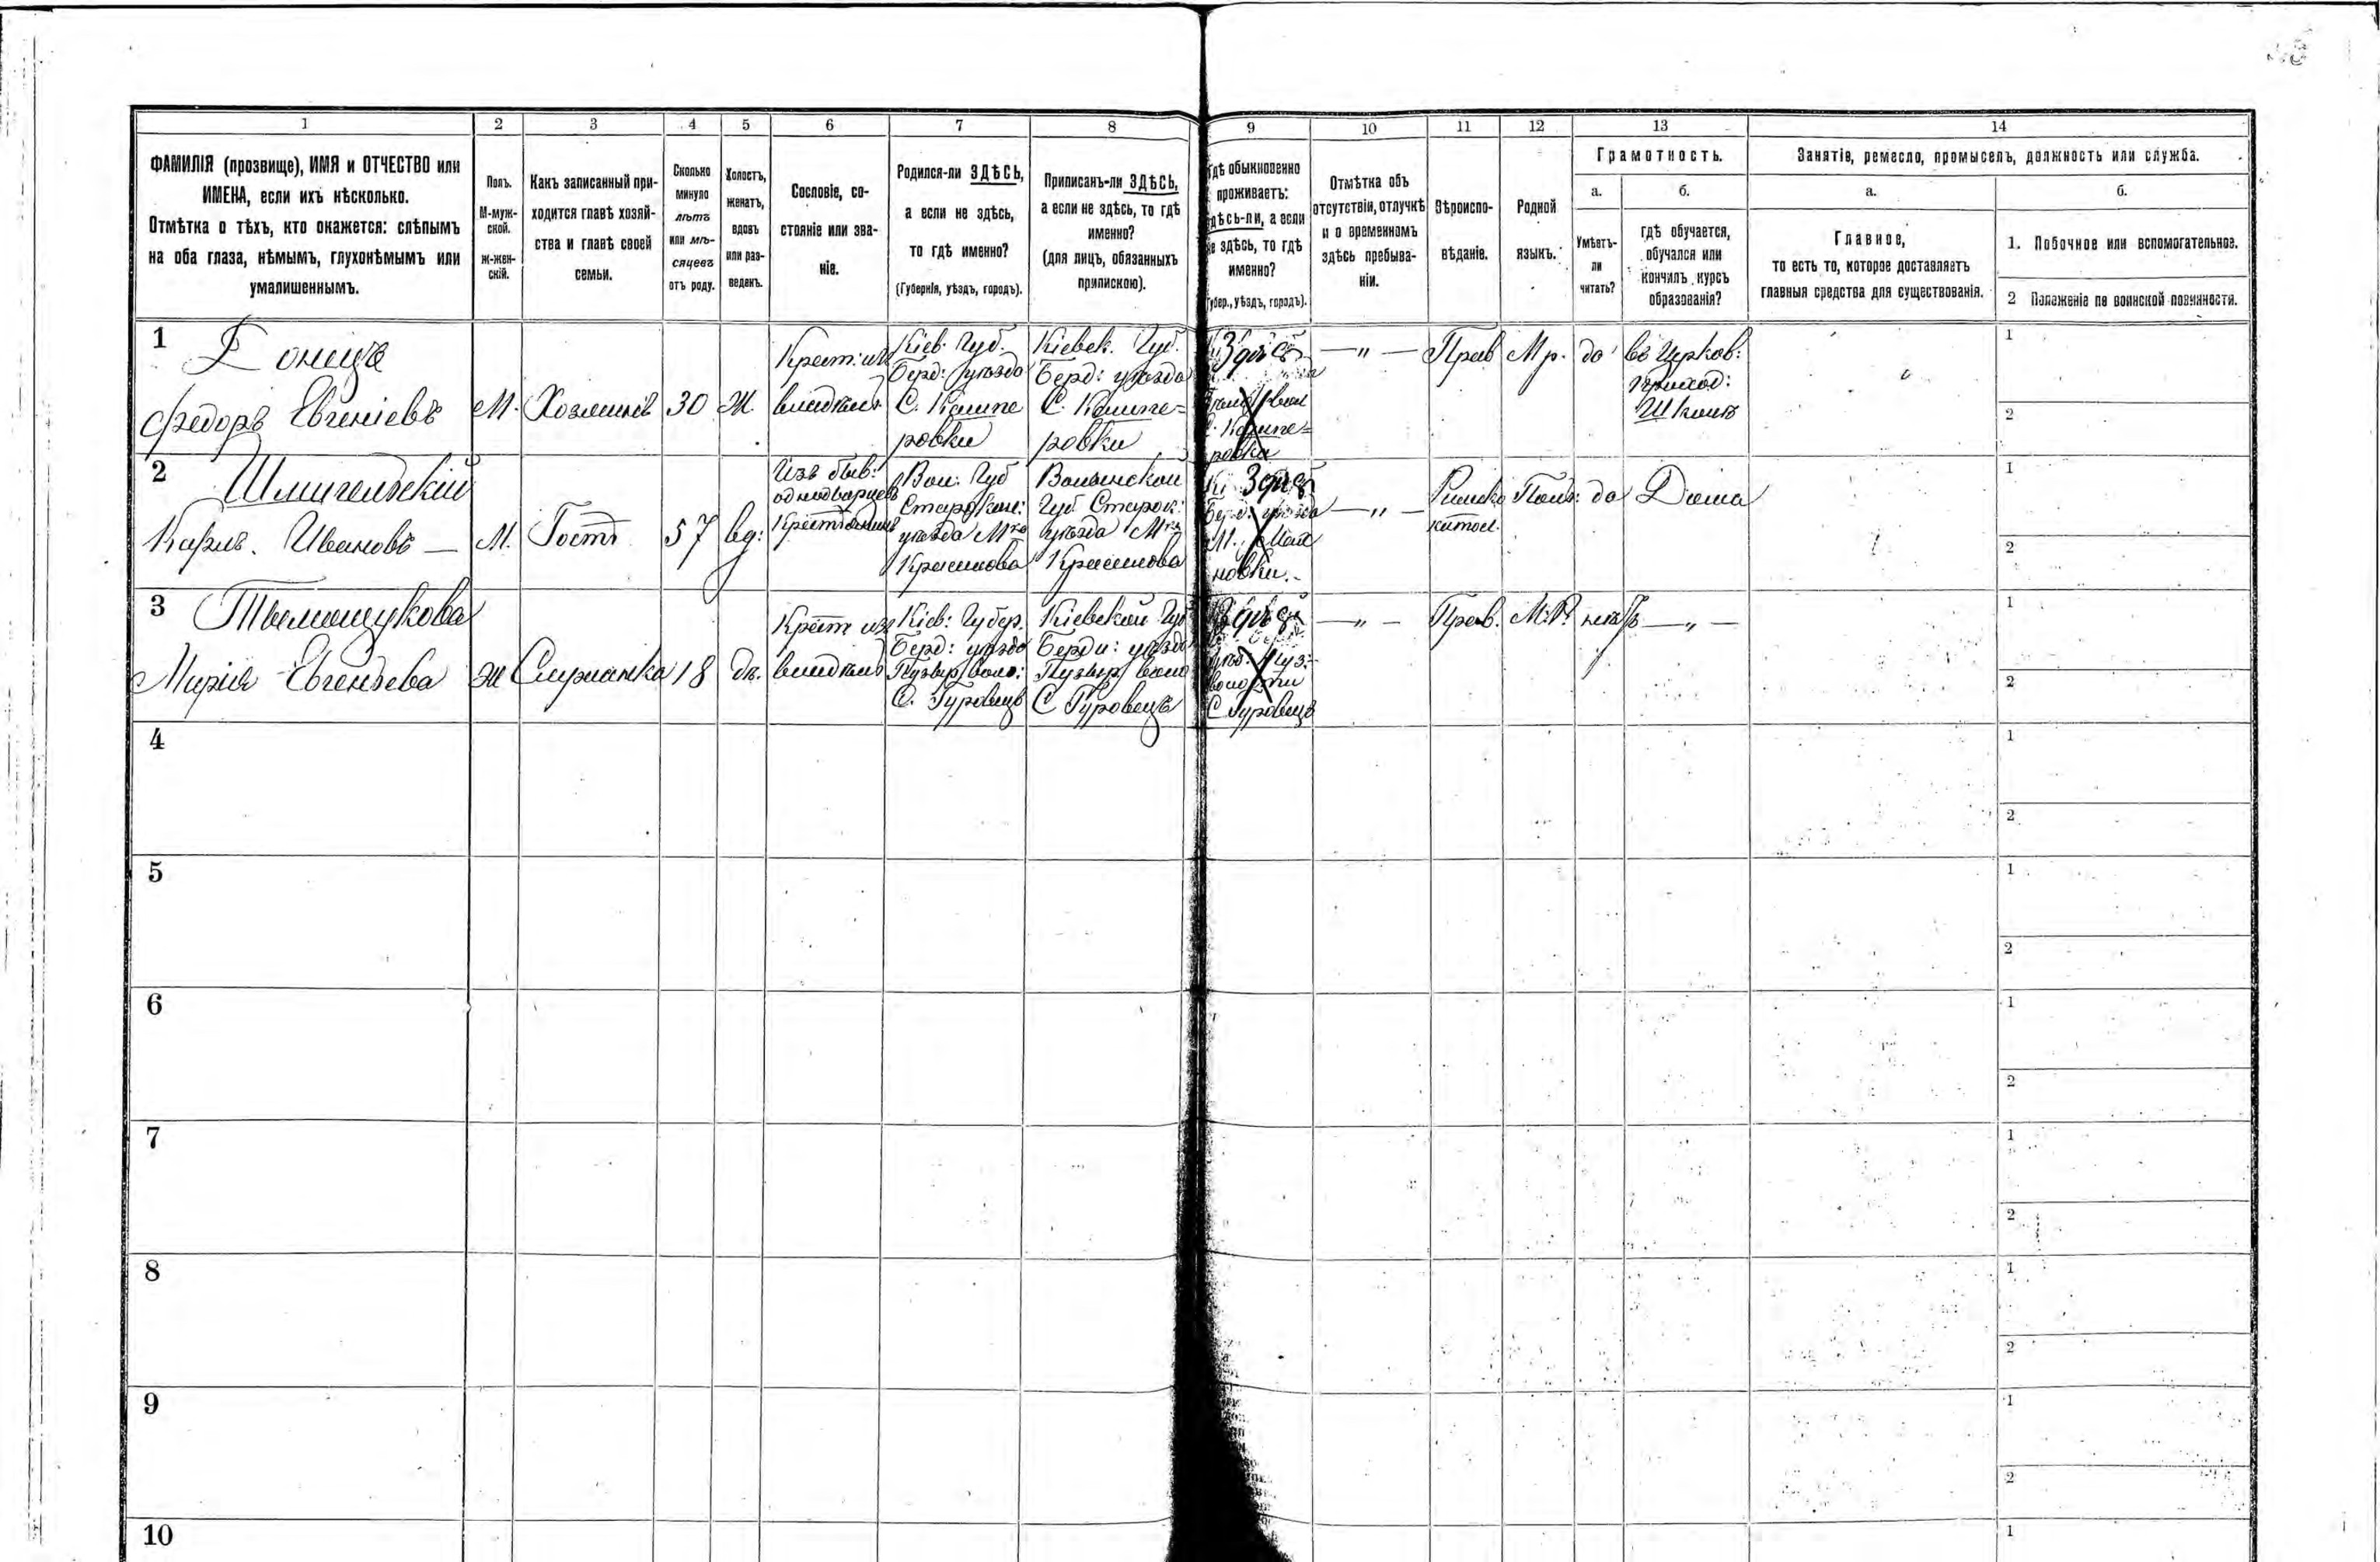 1
2
3
4
5
6
7
8
9
10
11
12
13
14
ФАМИЛІЯ (прозвище), ИМЯ и ОТЧЕСТВО или
ИМЕНА, если ихъ нѣсколько.
Отмѣтка о тѣхъ, кто окажется: слѣпымъ
на оба глаза, нѣмымъ, глухонѣмымъ или
умалишеннымъ.
Полъ.
М-муж-
ской.
ж-жен-
скій.
Какъ записанный при-
ходится главѣ хозяй-
ства и главѣ своей
семьи.
Сколько
минуло
лѣтъ
или мѣ-
сяцевъ
отъ роду.
Холостъ,
женатъ,
вдовъ
или раз-
веденъ.
Сословіе, со-
стояніе или зва-
ніе.
Родился-ли ЗДѢСЬ,
а если не здѣсь,
то гдѣ именно?
(Губернія, уѣздъ, городъ).
Приписанъ-ли ЗДѢСЬ,
а если не здѣсь, то гдѣ
именно?
(для лицъ, обязанныхъ
припискою).
гдѣ обыкновенно
проживаетъ:
здѣсь-ли, а если
не здѣсь, то гдѣ
именно?
(Губер., уѣздъ, городъ).
Отмѣтка объ
отсутствіи, отлучкѣ
и о временномъ
здѣсь пребыва-
ніи.
Вѣроиспо-
вѣданіе.
Родной
языкъ.
Грамотность.
а.
б.
Умѣетъ-
ли
читать?
гдѣ обучается,
обучался или
кончилъ курсъ
образованія?
Занятіе, ремесло, промыселъ, должность или служба.
а.
б.
Главное,
то есть то, которое доставляетъ
главныя средства для существованія.
1. Побочное или вспомогательное.
2 Положеніе по воинской повинности.
1
Донецъ
Федоръ Евгеніевъ
М.
Хозяинъ
30
Ж.
Крест: изъ
владѣльч.
Кіев. Губ.
Берд: уѣзда
С. Кашпе
ровки
Кіевск. Губ.
Берд: уѣзда
С. Кашпе=
ровки
Здѣсь
С. Кашпе=
ровка
— " —
Прав
Мр.
да
въ Церков:
приход:
Школѣ
1
2
2
Шмигельскій
Карлъ. Ивановъ —
М.
Гость
57
вд:
Изъ быв:
однодворцевъ
Вол. Губ
Старокон:
уѣзда Мко
Красилова
Волынской
Губ. Старок:
уѣзда Мко
Красилова
Здѣсь
Берд: уѣзда
новки.
— " —
Римско
катол.
Поль:
да
Дома
1
2
3
Тымощукова
Марія Евгеньева
ж
Служанка
18
дѣ.
Крест изъ
владѣльч
Кіев: Губер.
Берд: уѣзда
Пузыр/ воло:
С. Гуровецъ
Кіевской Губ
Берди: уѣзда
Пузыр/ воло
С Гуровецъ
Здѣсь
С Гуровецъ
— " —
Прав.
М.Р.
нетъ
— " —
1
2
4
1
2
5
1
2
6
1
2
7
1
2
8
1
2
9
1
2
10
1